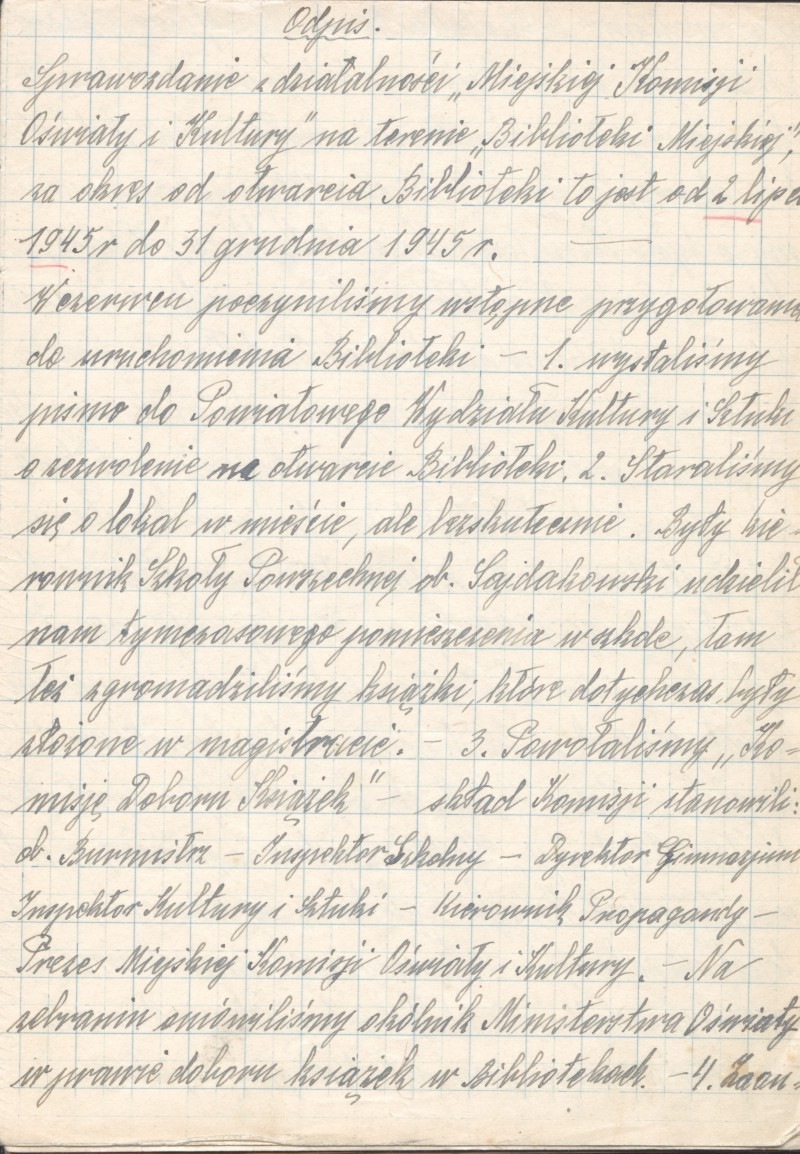 Odpis.
Sprawozdanie z działalności „Miejskiej Komisji
Oświaty i Kultury" na terenie „Biblioteki Miejskiej",
za okres od otwarcia Biblioteki to jest od 2 lipca
1945 r do 31 grudnia 1945 r.
W czerwcu poczyniliśmy wstępne przygotowania
do uruchomienia Biblioteki – 1. wysłaliśmy
pismo do Powiatowego Wydziału Kultury i Sztuki
o zezwolenie na otwarcie Biblioteki. 2. Staraliśmy
się o lokal w mieście, ale bezskutecznie. Były kie-
rownik Szkoły Powszechnej ob. Sajdakowski udzielił
nam tymczasowego pomieszczenia w szkole, tam
też zgromadziliśmy książki, które dotychczas były
złożone w magistracie. – 3. Powołaliśmy „Ko-
misję Doboru Książek" – skład Komisji stanowili:
ob. Burmistrz – Inspektor Szkolny – Dyrektor Gimnazjum
Inspektor Kultury i Sztuki – Kierownik Propagandy –
Prezes Miejskiej Komisji Oświaty i Kultury. – Na
zebraniu omówiliśmy okólnik Ministerstwa Oświaty
w prawie doboru książek w Bibliotekach. – 4.